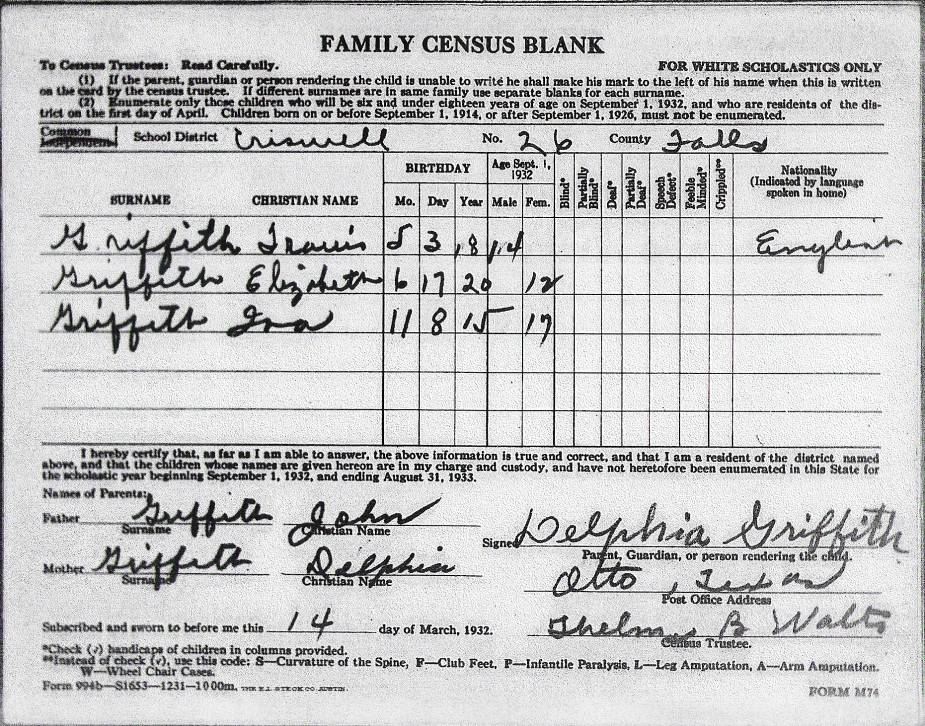 FAMILY CENSUS BLANK
To Census Trustees: Read Carefully. FOR WHITE SCHOLASTICS ONLY
(1) If the parent, guardian or person rendering the child is unable to write he shall make his mark to the left of his name when this is written
on the card by the census trustee. If different surnames are in same family use separate blanks for each surname.
(2) Enumerate only those children who will be six and under eighteen years of age on September 1, 1932, and who are residents of the dis-
trict on the first day of April. Children born on or before September 1, 1914, or after September 1, 1926, must not be enumerated.
Common
Independent School District Criswell No. 26 County Falls
SURNAME CHRISTIAN NAME BIRTHDAY Mo. Day Year Age Sept. 1, 1932 Male Fem. Blind* Partially Blind* Deaf* Partially Deaf* Speech Defect* Feeble Minded* Crippled** Nationality (Indicated by language spoken in home)
Griffith Travis 5 3 18 14 English
Griffith Elizabeth 6 17 20 12
Griffith Iva 11 8 15 17
I hereby certify that, as far as I am able to answer, the above information is true and correct, and that I am a resident of the district named
above, and that the children whose names are given hereon are in my charge and custody, and have not heretofore been enumerated in this State for
the scholastic year beginning September 1, 1932, and ending August 31, 1933.
Names of Parents:
Father Griffith John Signed Delphia Griffith
Surname Christian Name Parent, Guardian, or person rendering the child.
Mother Griffith Delphia Otto, Texas
Surname Christian Name Post Office Address
Subscribed and sworn to before me this 14 day of March, 1932. Thelma B Walts
Census Trustee.
*Check (√) handicaps of children in columns provided.
**Instead of check (√), use this code: S—Curvature of the Spine, F—Club Feet, P—Infantile Paralysis, L—Leg Amputation, A—Arm Amputation.
W—Wheel Chair Cases.
Form 994b—S1653—1231—100m. THE E.L. STECK CO. AUSTIN. FORM M74